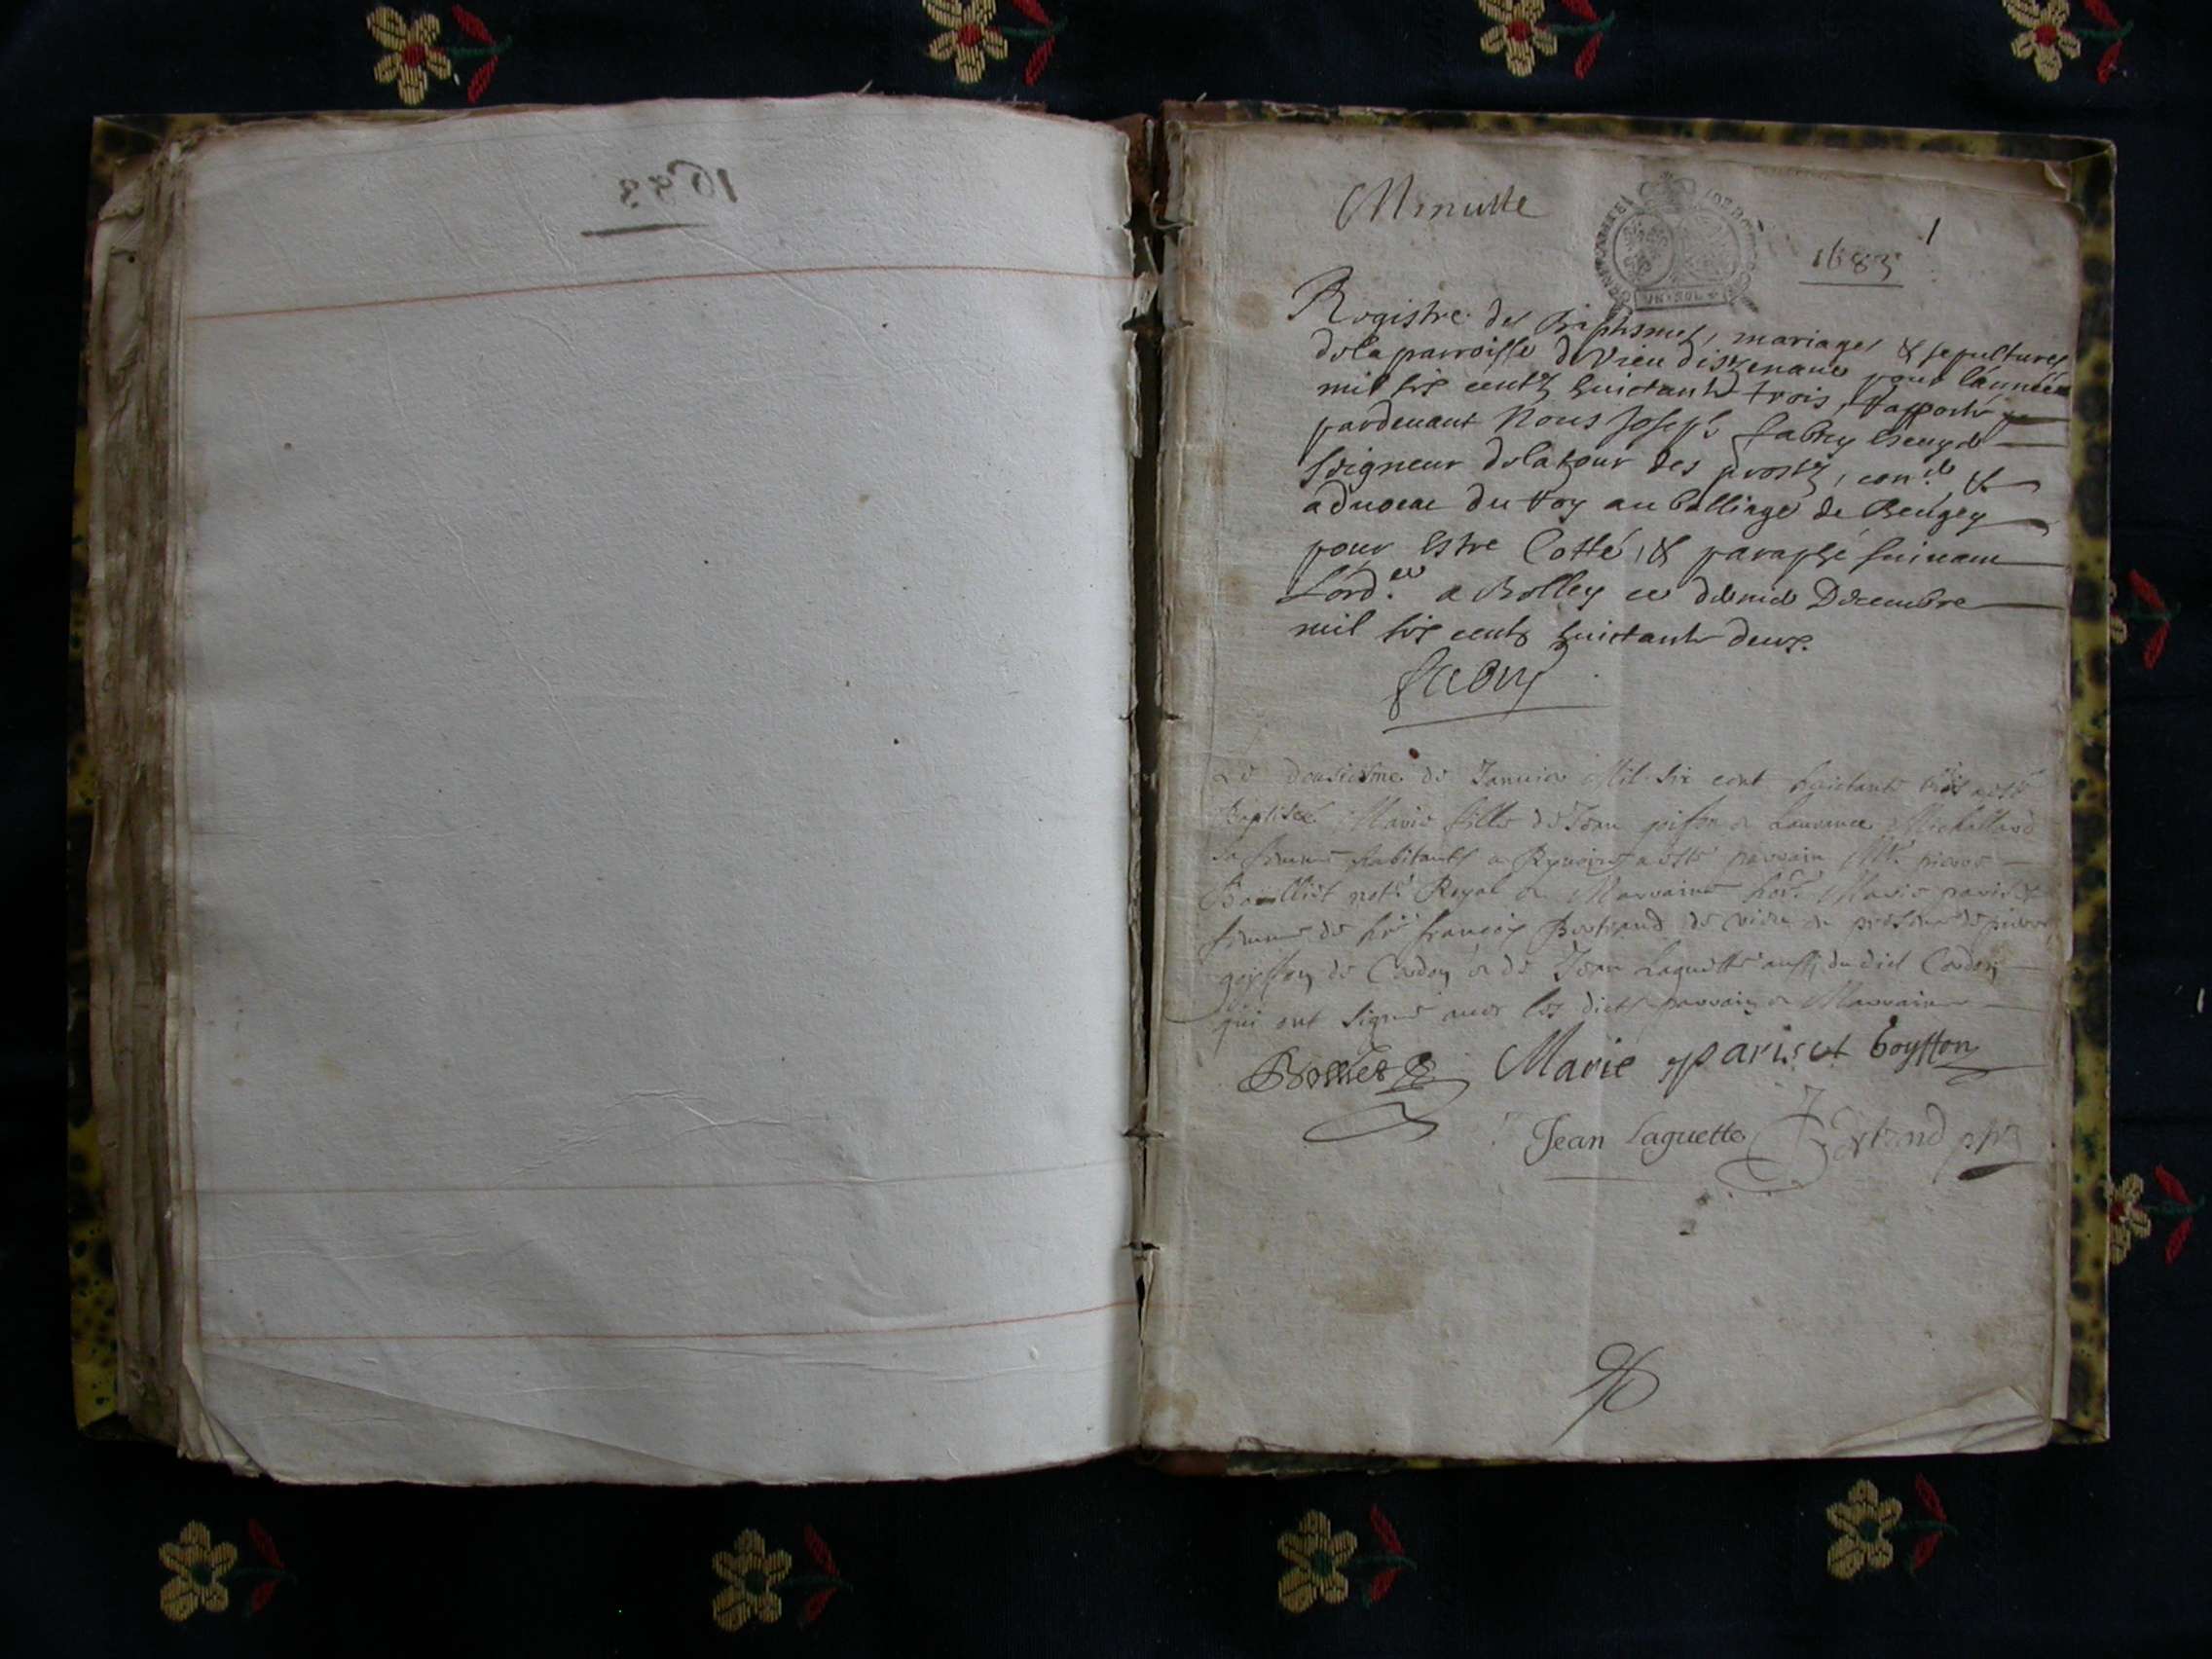 1683
Minutte
UN SOL
1
1683
Registre des Baptismes, mariages & sepultures
dela parroisse de Vieu diszenave pour l'année
mil six centz huictante trois, rapporté
pardevant Nous Joseph fabry Escuyer
seigneur dela tour des prostz, con.er &
advocat du Roy au balliage de Beugey
pour Estre Cotté, & paraphé suivant
l'ord.ce a Belley ce dernier Decembre
mil six centz huictante deux.
fabry
Le dousiesme de Janvier Mil six cent huictante trois a esté
Baptisée Marie fille de Jean goiffon & Laurance Michallard
sa femme habitants a a esté parrain M.e pierre
not.e Royal & Marraine hon.e Marie pariset
femme de h.e françois Bertrand de vieu en presence de pierre
goyffon de Cordon & de Jean Laguette aussy du dict Cordon
qui ont signé avec les dicts parrain & Marraine
Marie pariset goyffon
Jean Laguette Bertrand ptre